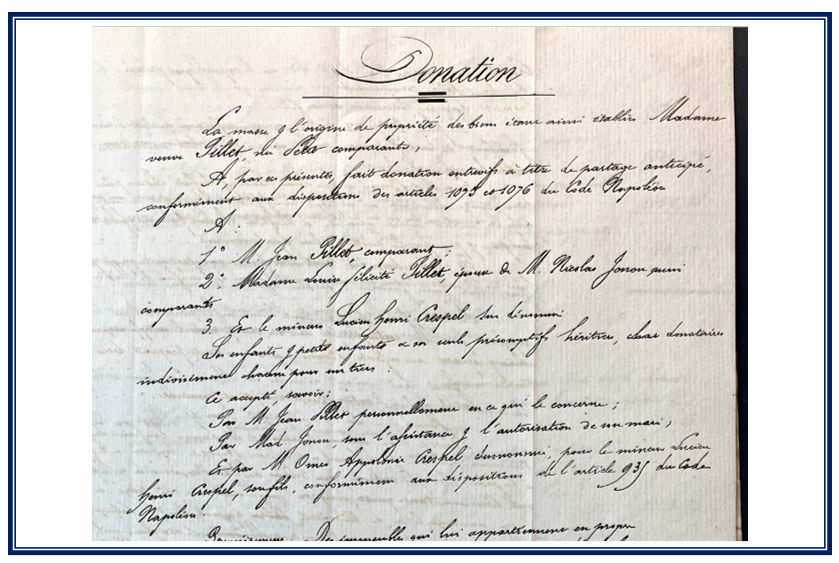 Donation
La masse & l'origine de propriété des biens étant ainsi établies Madame
veuve Pillet, née Petit comparante,
A, par ces présentes, fait donation entrevifs à titre de partage anticipé,
conformément aux dispositions des articles 1075 et 1076 du Code Napoléon
A :
1° M. Jean Pillet, comparant ;
2° Madame Louise félicité Pillet, épouse de M. Nicolas Jonon, aussi
comparants
3. Et le mineur Lucien henri Crespel sus dénommé
Ses enfants & petits enfants & ses seuls présomptifs héritiers, donataires
indivisément chacun pour un tiers.
Ce accepté, savoir :
Par M. Jean Pillet personnellement en ce qui le concerne ;
Par Mad. Jonon sous l'assistance & l'autorisation de son mari,
Et par M. Omer Appolonie Crespel susnommé, pour le mineur Lucien
henri Crespel, son fils, conformément aux dispositions de l'article 935 du Code
Napoléon.
Des immeubles qui lui appartiennent en propre